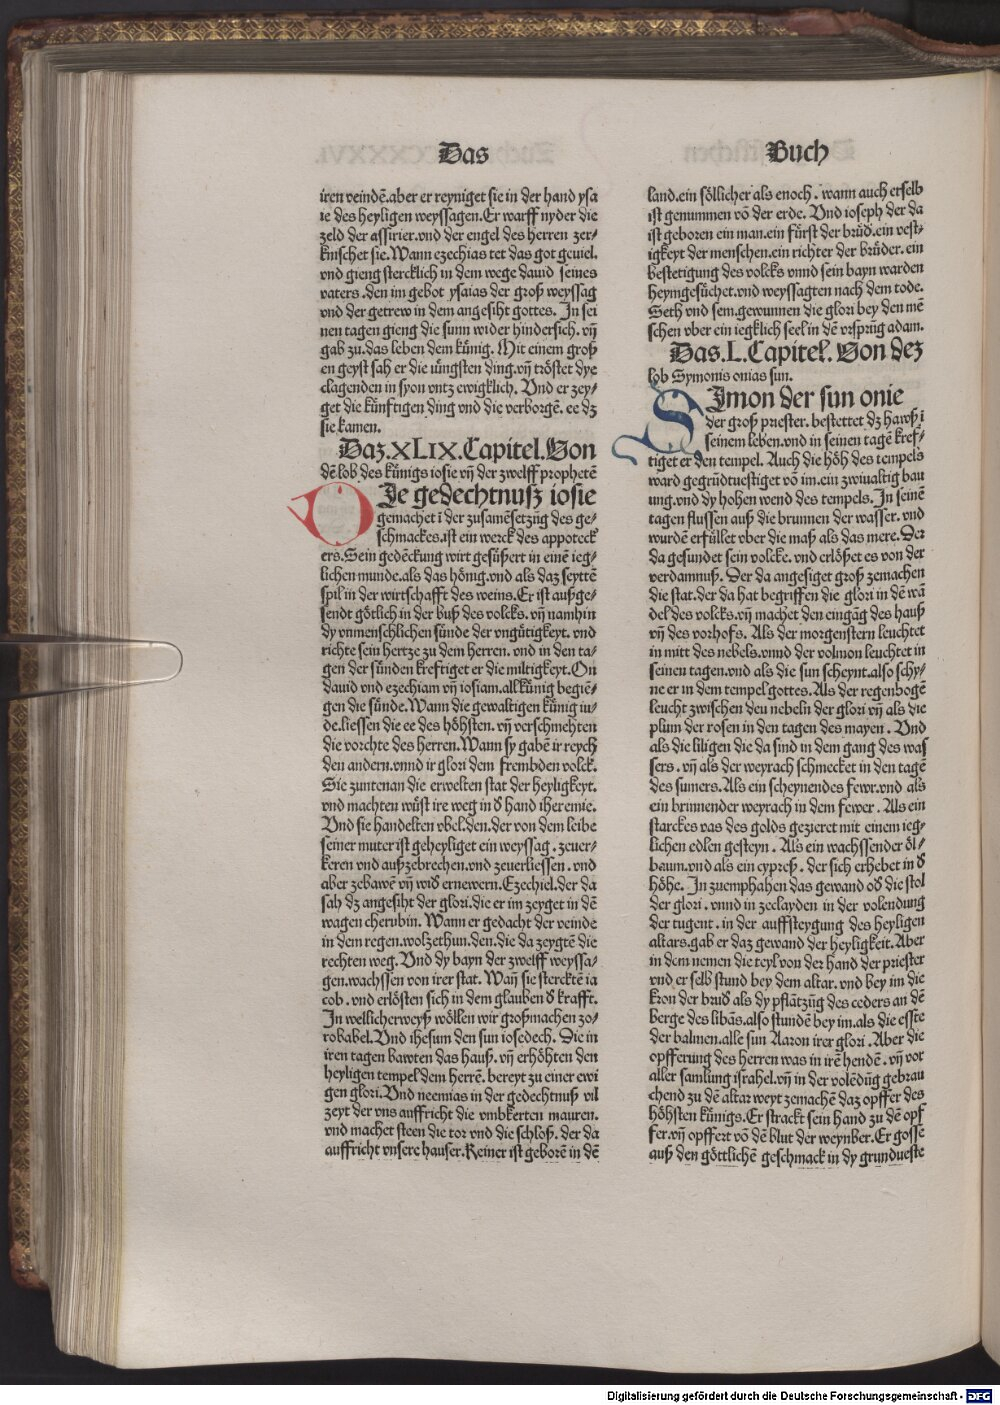 Das
Buch
iren veindē.aber er reyniget sie in der hand ysa
ie des heyligen weyssagen.Er warff nyder die
zeld der assirier.vnd der engel des herren zer⸗
knischet sie.Wann ezechias tet das got geuiel.
vnd gieng stercklich in dem wege dauid seines
vaters.den im gebot ysaias der groß weyssag
vnd der getrew in dem angesiht gottes. In sei
nen tagen gieng die sunn wider hindersich.vñ
gab zu.das leben dem kűnig. Mit einem groß
en geyst sah er die iűngsten ding.vñ tröstet dye
clagenden in syon vntz ewigklich. Vnd er zey⸗
get die kűnfftigen ding vnd die verborgē.ee dz
sie kamen.
Daz.XLIX.Capitel.Von
dē lob des kűnigs iosie vñ der zwelff prophetē
DJe gedechtnuß iosie
gemachet ī der zusamēsetzūg des ge⸗
schmackes.ist ein werck des appoteck
ers.Sein gedēckung wirt gesűßert in einē ieg⸗
lichen munde.als das hönig.vnd als daz seyttē
spil in der wirtschafft des weins.Er ist außge⸗
sendt götlich in der buß des volcks.vñ namhin
dy vnmenschlichen sűnde der vngűtigkeyt.vnd
richte sein hertze zu dem herren.vnd in den ta⸗
gen der sűnden kreftiget er die miltigkeyt.On
dauid vnd ezechiam vñ iosiam.all kűnig begiē⸗
gen die sűnde.Wann die gewaltigen kűnig iu⸗
de.liessen die ee des höhsten.vñ verschmehten
die vorchte des herren.Wann sy gabē ir reych
den andern.vnnd ir glori dem frembden volck.
Sie zuntenan die erwelten stat der heyligkeyt.
vnd machten wűst ire weg in d hand iheremie.
Vnd sie handelten vbel.den.der von dem leibe
seiner muter ist geheyliget ein weyssag.zeuer⸗
keren vnd außzebrechen.vnd zeuerliessen.vnd
aber zebawē vñ wid ernewern.Ezechiel.der da
sah dz angesiht der glori.die er im zeyget in dē
wagen cherubin. Wann er gedacht der veinde
in dem regen.wolzethun.den.die da zeygtē die
rechten weg. Vnd dy bayn der zwelff weyssa⸗
gen.wachssen von irer stat. Wañ sie stercktē ia
cob.vnd erlösten sich in dem glauben d krafft.
In wellicherweyß wöllen wir großmachen zo⸗
robabel.Vnd ihesum den sun iosedech. Die in
iren tagen bawten das hauß.vñ erhöhten den
heyligen tempel dem herrē.bereyt zu einer ewi
gen glori.Vnd neemias in der gedechtnuß vil
zeyt der vns auffricht die vmbkerten mauren.
vnd machet steen die tor vnd die schloß.der da
auffricht vnsere hauser.Keiner ist geborē in dē
land.ein söllicher als enoch.wann auch erselb
ist genummen vō der erde. Vnd ioseph der da
ist geboren ein man.ein fűrst der brűd.ein vest⸗
igkeyt der menschen.ein richter der brűder.ein
bestetigung des volcks vnnd sein bayn warden
heymgesűchet.vnd weyssagten nach dem tode.
Seth vnd sem.gewunnen die glori bey den mē
schen vber ein iegklich seel in dē vrsprūg adam.
Das.L.Capitel.Von dez
lob Symonis onias sun.
SJmon der sun onie
der groß priester.bestettet dz hawß ī
seinem leben.vnd in seinen tagē kref⸗
tiget er den tempel. Auch die höh des tempels
ward gegrűdtuestiget vō im.ein zwiualtig bau
ung.vnd dy hohen wend des tempels.In seinē
tagen flussen auß die brunnen der wasser.vnd
wurdē erfűllet vber die maß als das mere.Der
da gesundet sein volcke.vnd erlößet es von der
verdamnuß. Der da angesiget groß zemachen
die stat.der da hat begriffen die glori in dē wā
del des volcks.vñ machet den eingāg des hauß
vñ des vorhofs. Als der morgenstern leuchtet
in mitt des nebels.vnnd der volmon leuchtet in
seinen tagen.vnd als die sun scheynt.also schy⸗
ne er in dem tempel gottes.Als der regenbogē
leucht zwischen den nebeln der glori vñ als die
plum der rosen in den tagen des mayen. Vnd
als die liligen die da sind in dem gang des was
sers.vñ als der weyrach schmecket in den tagē
des sumers.Als ein scheynendes fewr.vnd als
ein brinnender weyrach in dem fewer. Als ein
starckes vas des golds gezieret mit einem ieg⸗
lichen edlen gesteyn. Als ein wachssender öl⸗
baum.vnd als ein cypreß.der sich erhebet in d
höhe. In zuemphahen das gewand od die stol
der glori.vnnd in zeclayden in der volendung
der tugent.in der auffsteygung des heyligen
altars.gab er daz gewand der heyligkeit.Aber
in dem nemen die teyl von der hand der priester
vnd er selb stund bey dem altar.vnd bey im die
kron der brud als dy pflātzūg des ceders an dē
berge des libās.also stundē bey im.als die esste
der balmen.alle sun Aaron irer glori. Aber die
opfferung des herren was in irē hendē.vñ vor
aller samlung israhel.vñ in der volēdūg gebrau
chend zu dē altar weyt zemachē daz opffer des
höhsten kűnigs.Er strackt sein hand zu dē opf
fer.vñ opffert vō dē blut der weynber.Er gosse
auß den göttlichē geschmack in dy grundueste
Digitalisierung gefördert durch die Deutsche Forschungsgemeinschaft - DFG